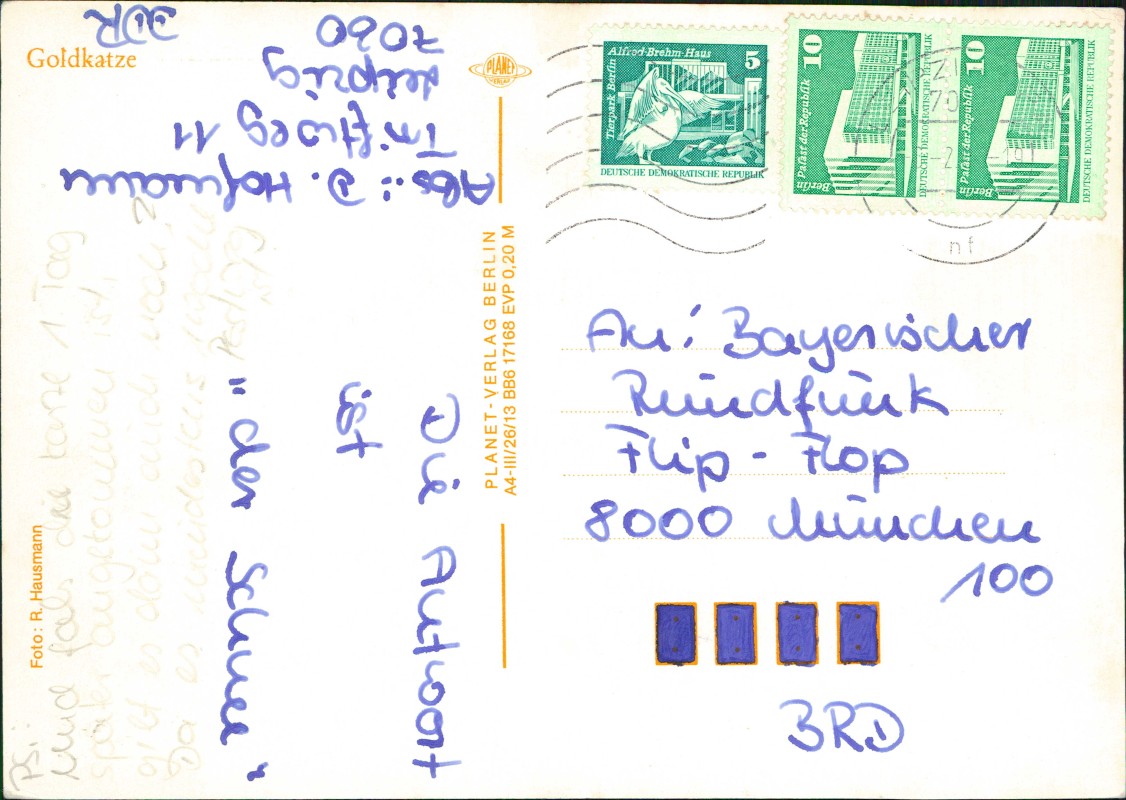 Goldkatze
PLANET
VERLAG
Abs.: D. Hofmann
Imftweg 11
Leipzig
7060
DDR
Die Antwort
ist
"der Schnee"
PS:
und fals die karte 1 Tag
später angekommen ist,
gilt es dann auch noch?
Da es mindestens
Foto: R. Hausmann
PLANET-VERLAG BERLIN
A4-III/26/13 BB6 17168 EVP 0,20 M
Alfred-Brehm-Haus
5
Tierpark Berlin
DEUTSCHE DEMOKRATISCHE REPUBLIK
10
Palast der Republik
Berlin
DEUTSCHE DEMOKRATISCHE REPUBLIK
10
Palast der Republik
Berlin
DEUTSCHE DEMOKRATISCHE REPUBLIK
nf
An: Bayerischer
Rundfunk
Flip-Flop
8000 München
100
BRD